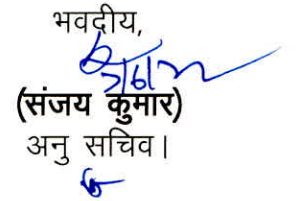 भवदीय,
(संजय कुमार)
अनु सचिव।